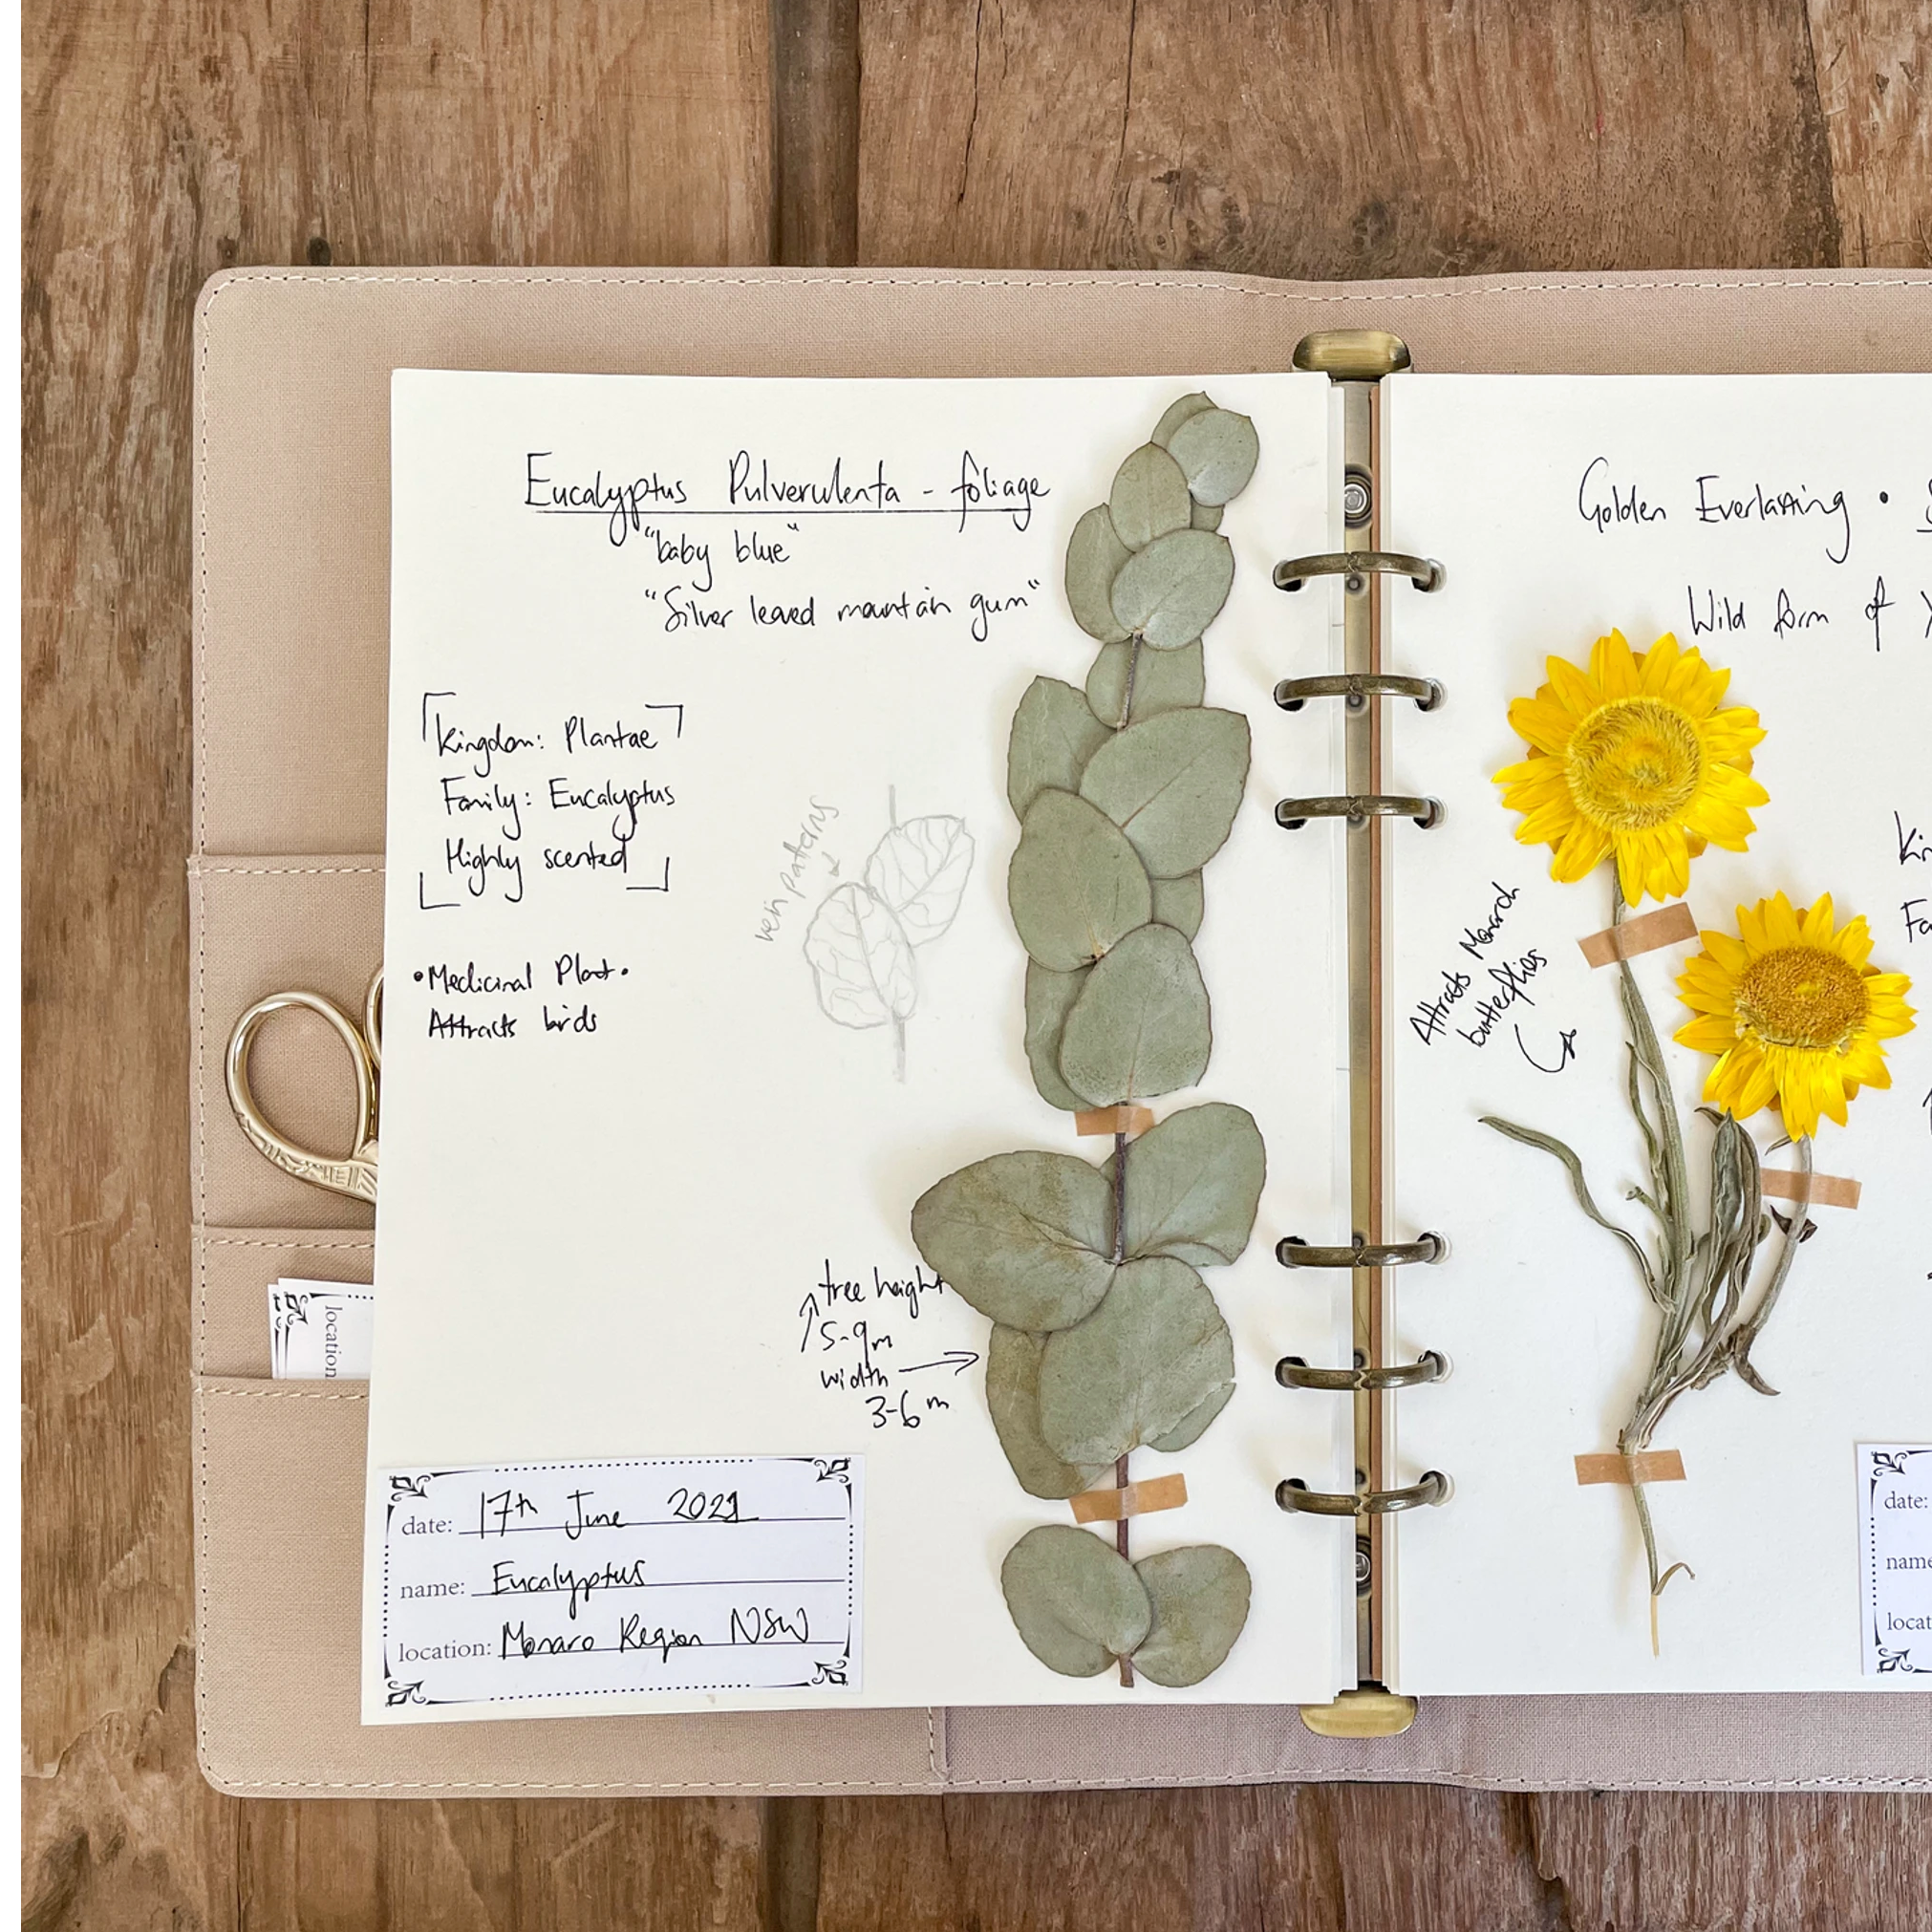 Eucalyptus Pulverulenta - foliage
"baby blue"
"Silver leaved mountain gum"
Kingdom: Plantae
Family: Eucalyptus
Highly scented
vein patterns
• Medicinal Plant •
Attracts birds
tree height
5-9m
width
3-6m
date: 17th June 2021
name: Eucalyptus
location: Monaro Region NSW
location
Golden Everlasting •
Wild form of
Attracts Monarch
butterflies
date:
name
locat